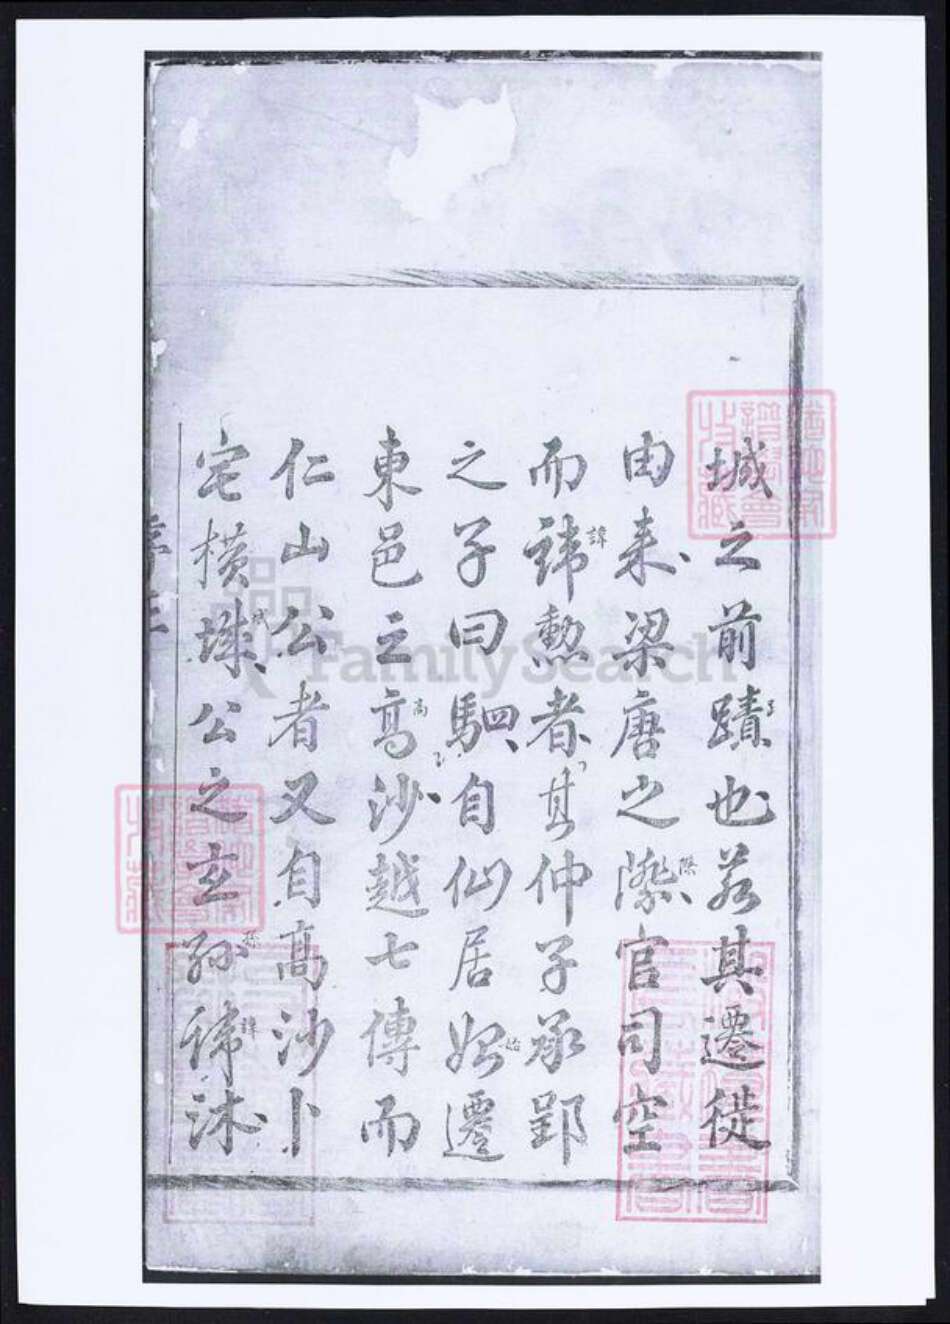 城之前蹟也若其遷徙
由来梁唐之際官司空
而諱勲者其仲子承郢
之子曰駟自仙居始遷
東邑之高沙越七傳而
仁山公者又自高沙卜
宅横城公之玄孫諱沐
FamilySearch